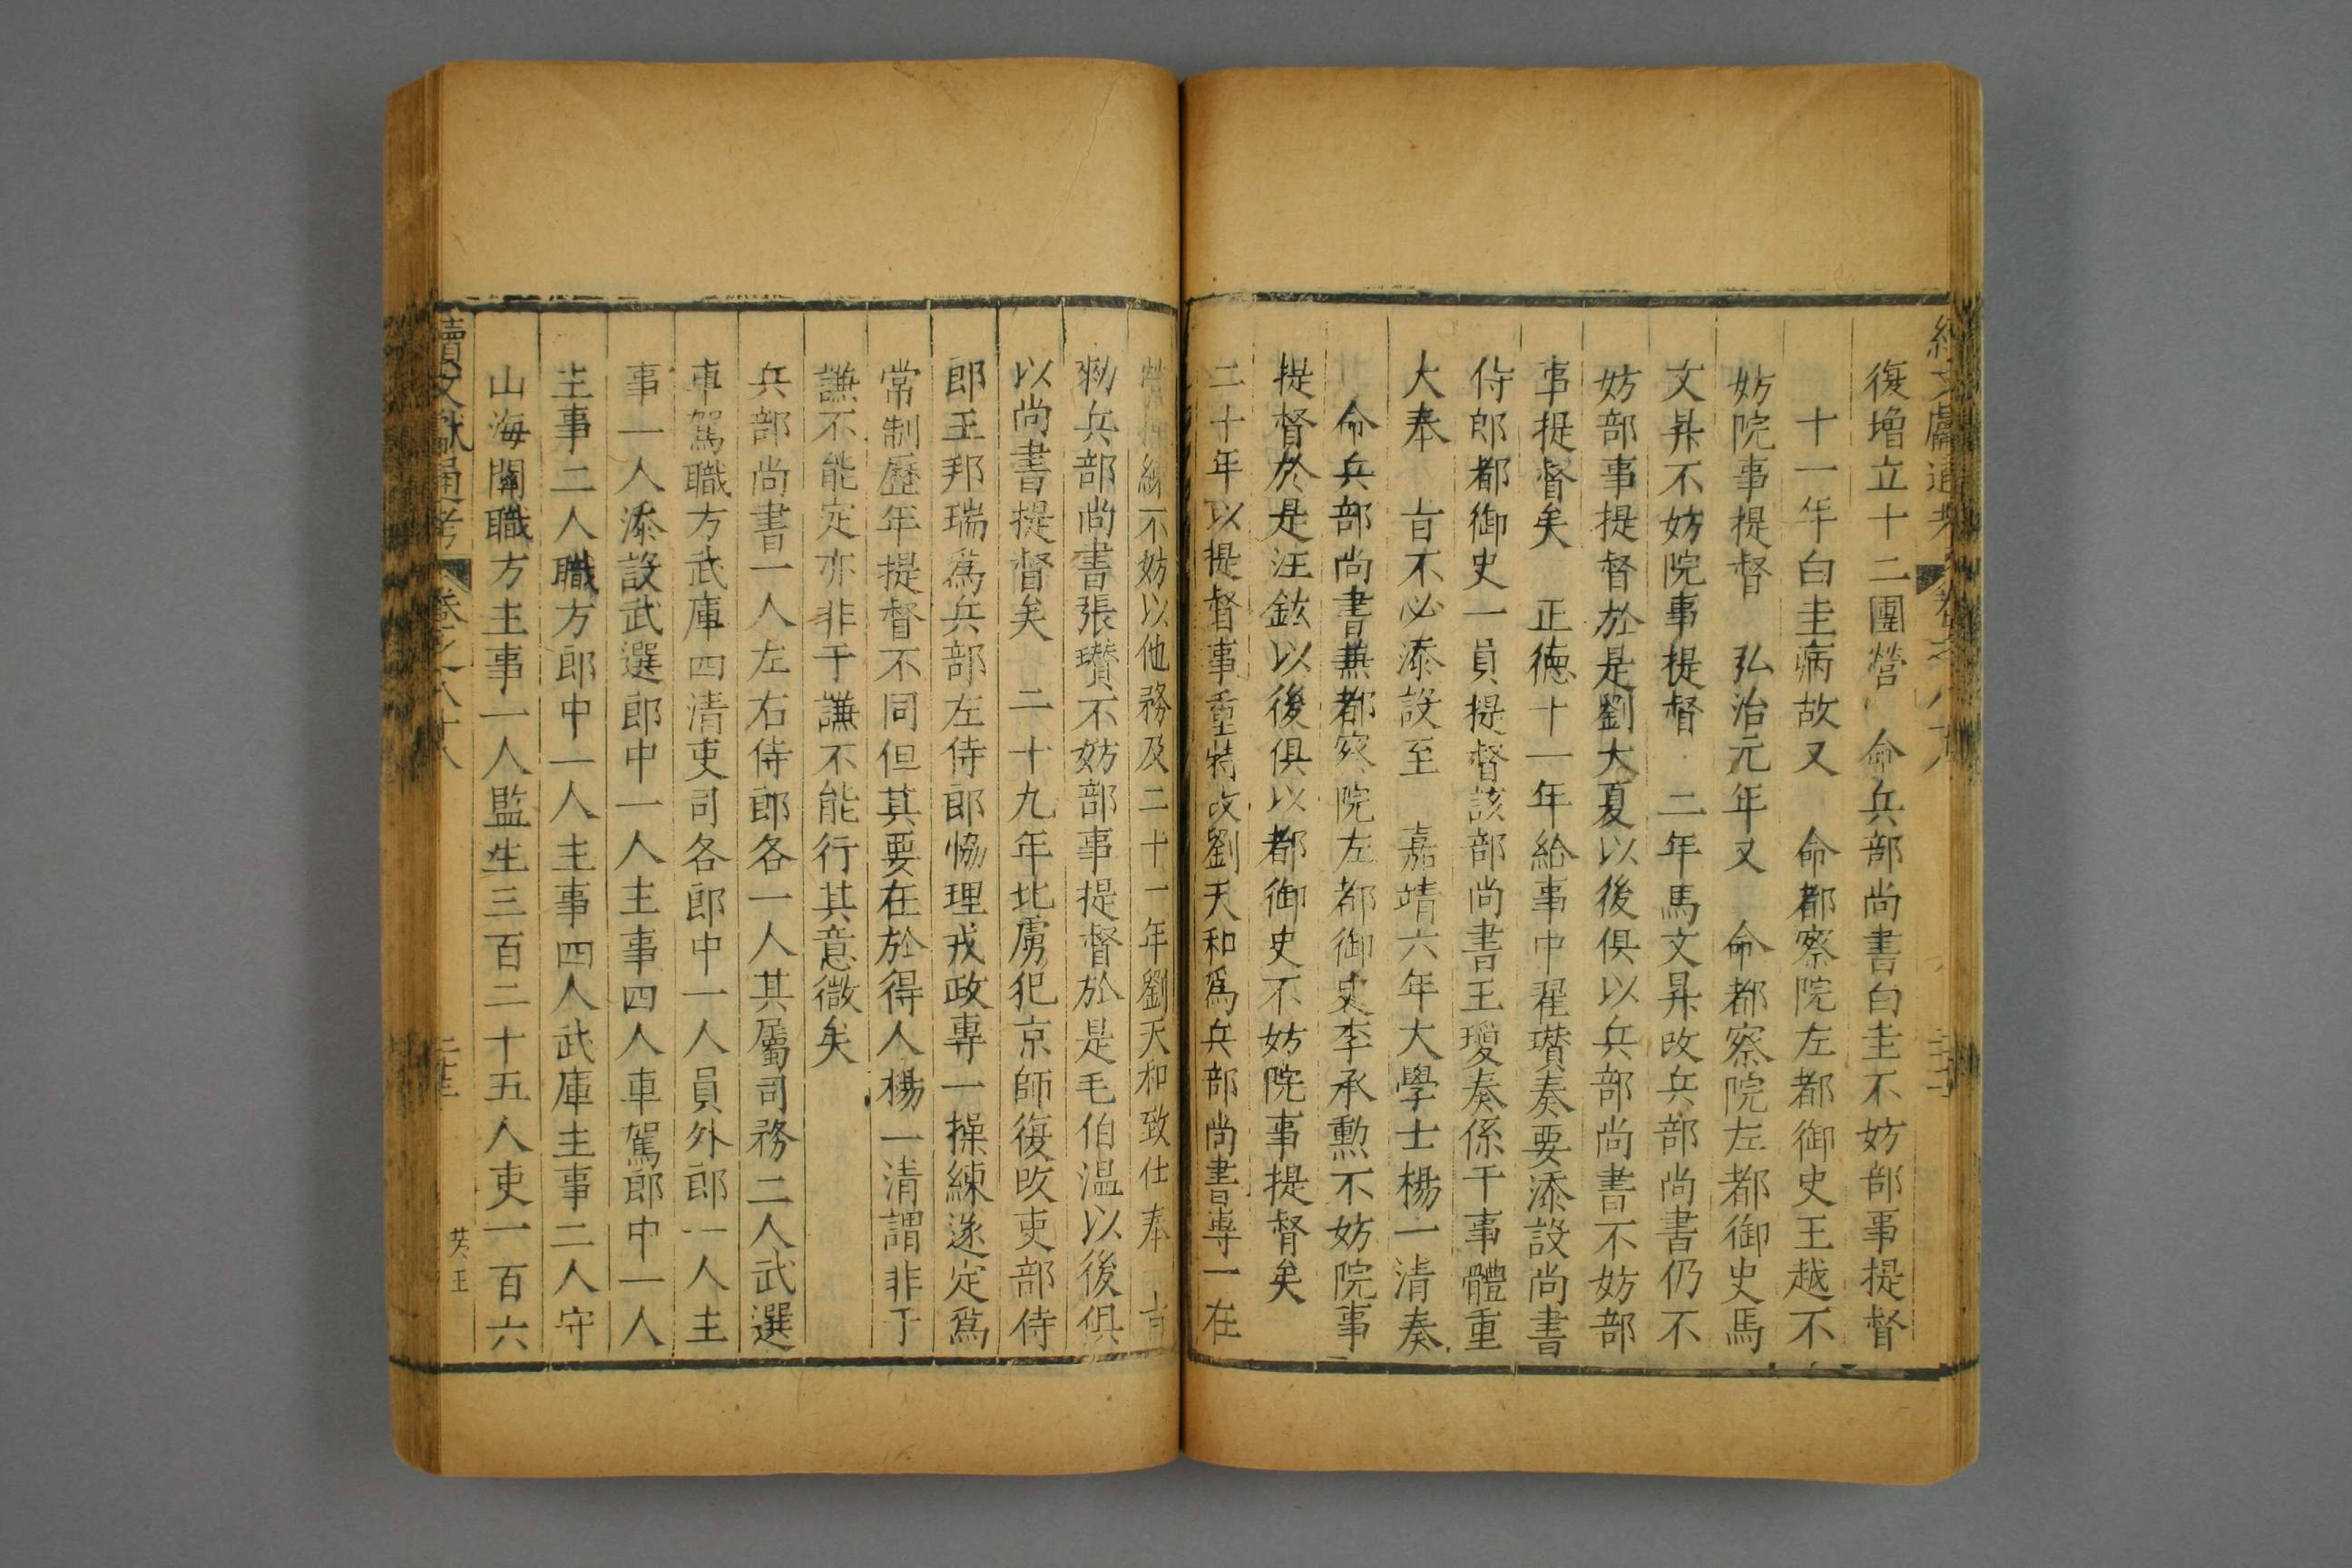 復增立十二團營 命兵部尚書白圭不妨部事提督
十一年白圭病故又 命都察院左都御史王越不
妨院事提督 弘治元年又 命都察院左都御史馬
文昇不妨院事提督 二年馬文昇改兵部尚書仍不
妨部事提督於是劉大夏以後俱以兵部尚書不妨部
事提督矣 正德十一年給事中翟瓚奏要添設尚書
侍郎都御史一員提督該部尚書王瓊奏係干事體重
大奉 旨不必添設至 嘉靖六年大學士楊一清奏
命兵部尚書兼都察院左都御史李承勲不妨院事
提督於是汪鋐以後俱以都御史不妨院事提督矣
二十年以提督事重特改劉天和爲兵部尚書專一在
營操練不妨以他務及二十一年劉天和致仕奉 旨
勑兵部尚書張瓚不妨部事提督於是毛伯温以後俱
以尚書提督矣 二十九年北虜犯京師復改吏部侍
郎王邦瑞爲兵部左侍郎恊理戎政專一操練遂定爲
常制歷年提督不同但其要在於得人楊一清謂非于
謙不能定亦非于謙不能行其意微矣
兵部尚書一人左右侍郎各一人其屬司務二人武選
車駕職方武庫四清吏司各郎中一人員外郎一人主
事一人添設武選郎中一人主事四人車駕郎中一人
主事二人職方郎中一人主事四人武庫主事二人守
山海關職方主事一人監生三百二十五人吏一百六
續文獻通考 卷之八十八